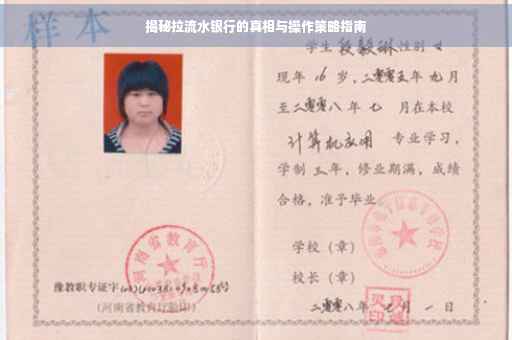 揭秘拉流水银行的真相与操作策略指南
样本
学生段毅琳性别女
现年16岁，二零零五年九月
至二零零八年七月在本校
计算机应用 专业学习，
学制三年，修业期满，成绩
合格，准予毕业
学校（章）
校长（章）
二零零八年七月一日
河南省教育厅
豫教职专证字
（河南省教育厅验印）